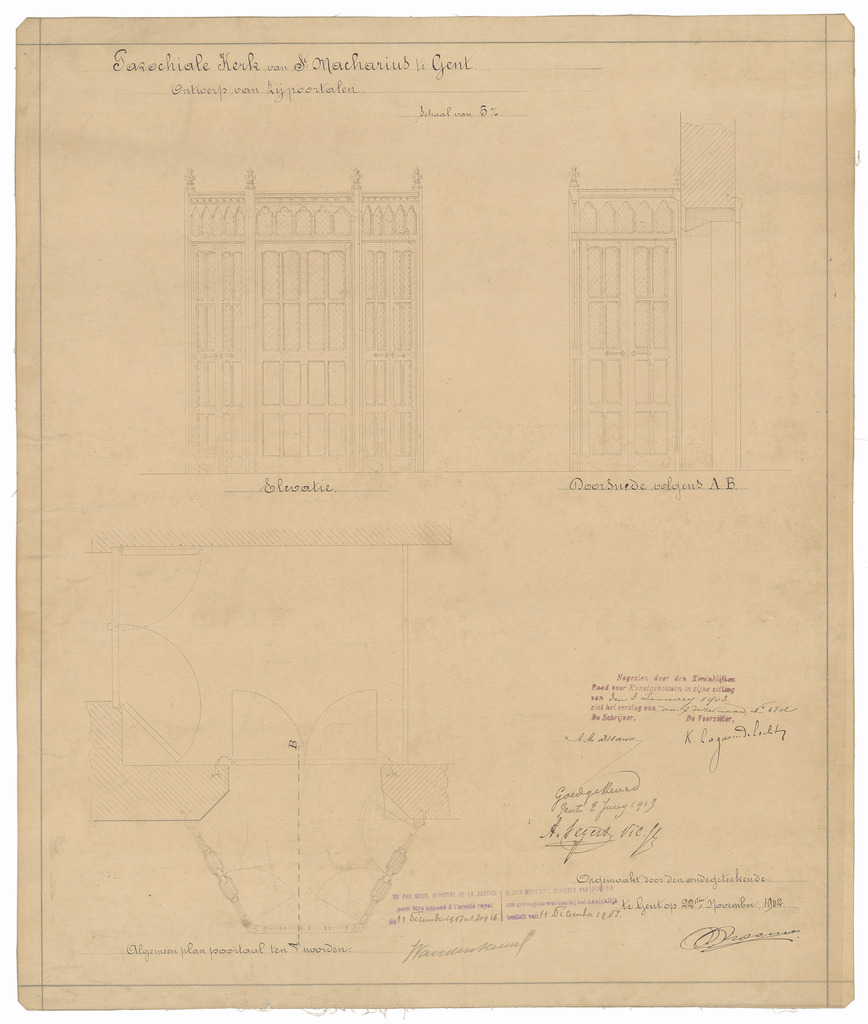 Parochiale Kerk van St Macharius te Gent.
Ontwerp van Zijpoortalen.
Schaal van 5%
Elevatie.
Doorsnede volgens A.B.
B
Nagezien door den Koninklijken
Raad voor Kunstgebouwen in zijne zitting
van den 3 January 1903
ziet het verslag van
De Schrijver,
De Voorzitter,
Goedgekeurd
Gent 2 Juny 1903
Opgemaakt door den ondegeteekende
te Gent op 22en November, 1902
VU PAR NOUS, MINISTRE DE LA JUSTICE
pour être annexé à l'arrêté royal
du 11 Décembre 1903
GEZIEN DOOR ONS, MINISTER VAN JUSTITIE
om gevoegd te worden bij het koninklijk
besluit van 11 December 1903.
Algemeen plan poortaal ten noorden.